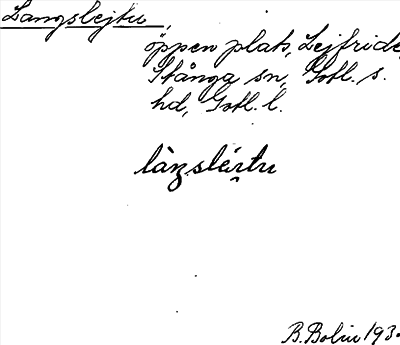 Langslejtu,
öppen plats, Lejfride,
Stånga sn, Gotl. s.
hd, Gotl. l.
B. Bolin 193